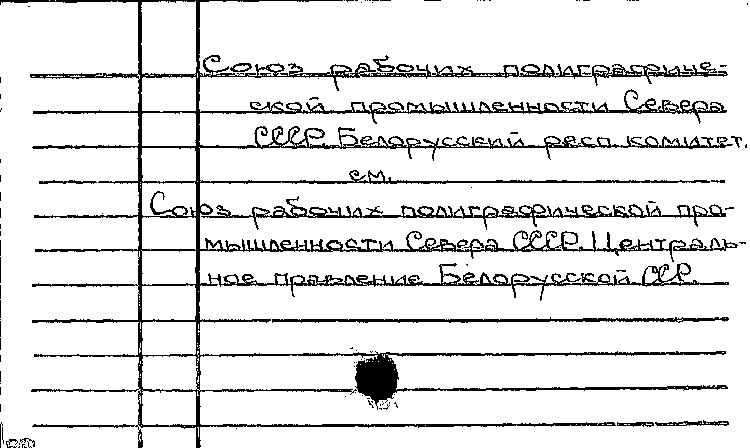 Союз рабочих полиграфиче-
ской промышленности Севера
СССР. Белорусский респ. комитет.
см.
Союз рабочих полиграфической про-
мышленности Севера СССР. Централь-
ное правление Белорусской ССР.